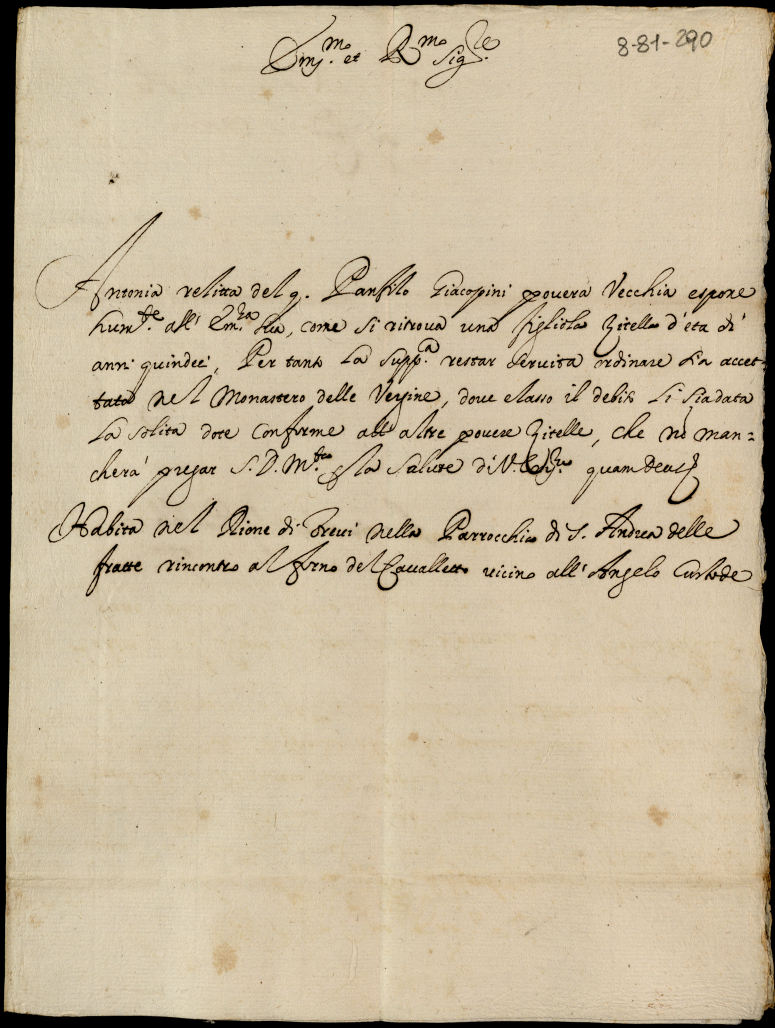 8-81-290
Em.mo et R.mo Sig.re
Antonia relitta del q. Panfilo Giacopini povera Vecchia espone
hum.te all' Em.za Sua, come si ritrova una figliola Zitella d'età di
anni quindeci, Per tanto la supp.a restar servita ordinare sia accet-
tata nel Monastero delle Vergine, dove elasso il debito li sia data
la solita dote conforme all' altre povere Zitelle, che nõ man=
cherà pregar S. D. M. la salute di V. quam Deus
Habita nel Rione di Trevi nella Parrocchia di S. Andrea delle
fratte rincontro al forno del Cavalletto vicino all' Angelo Custode